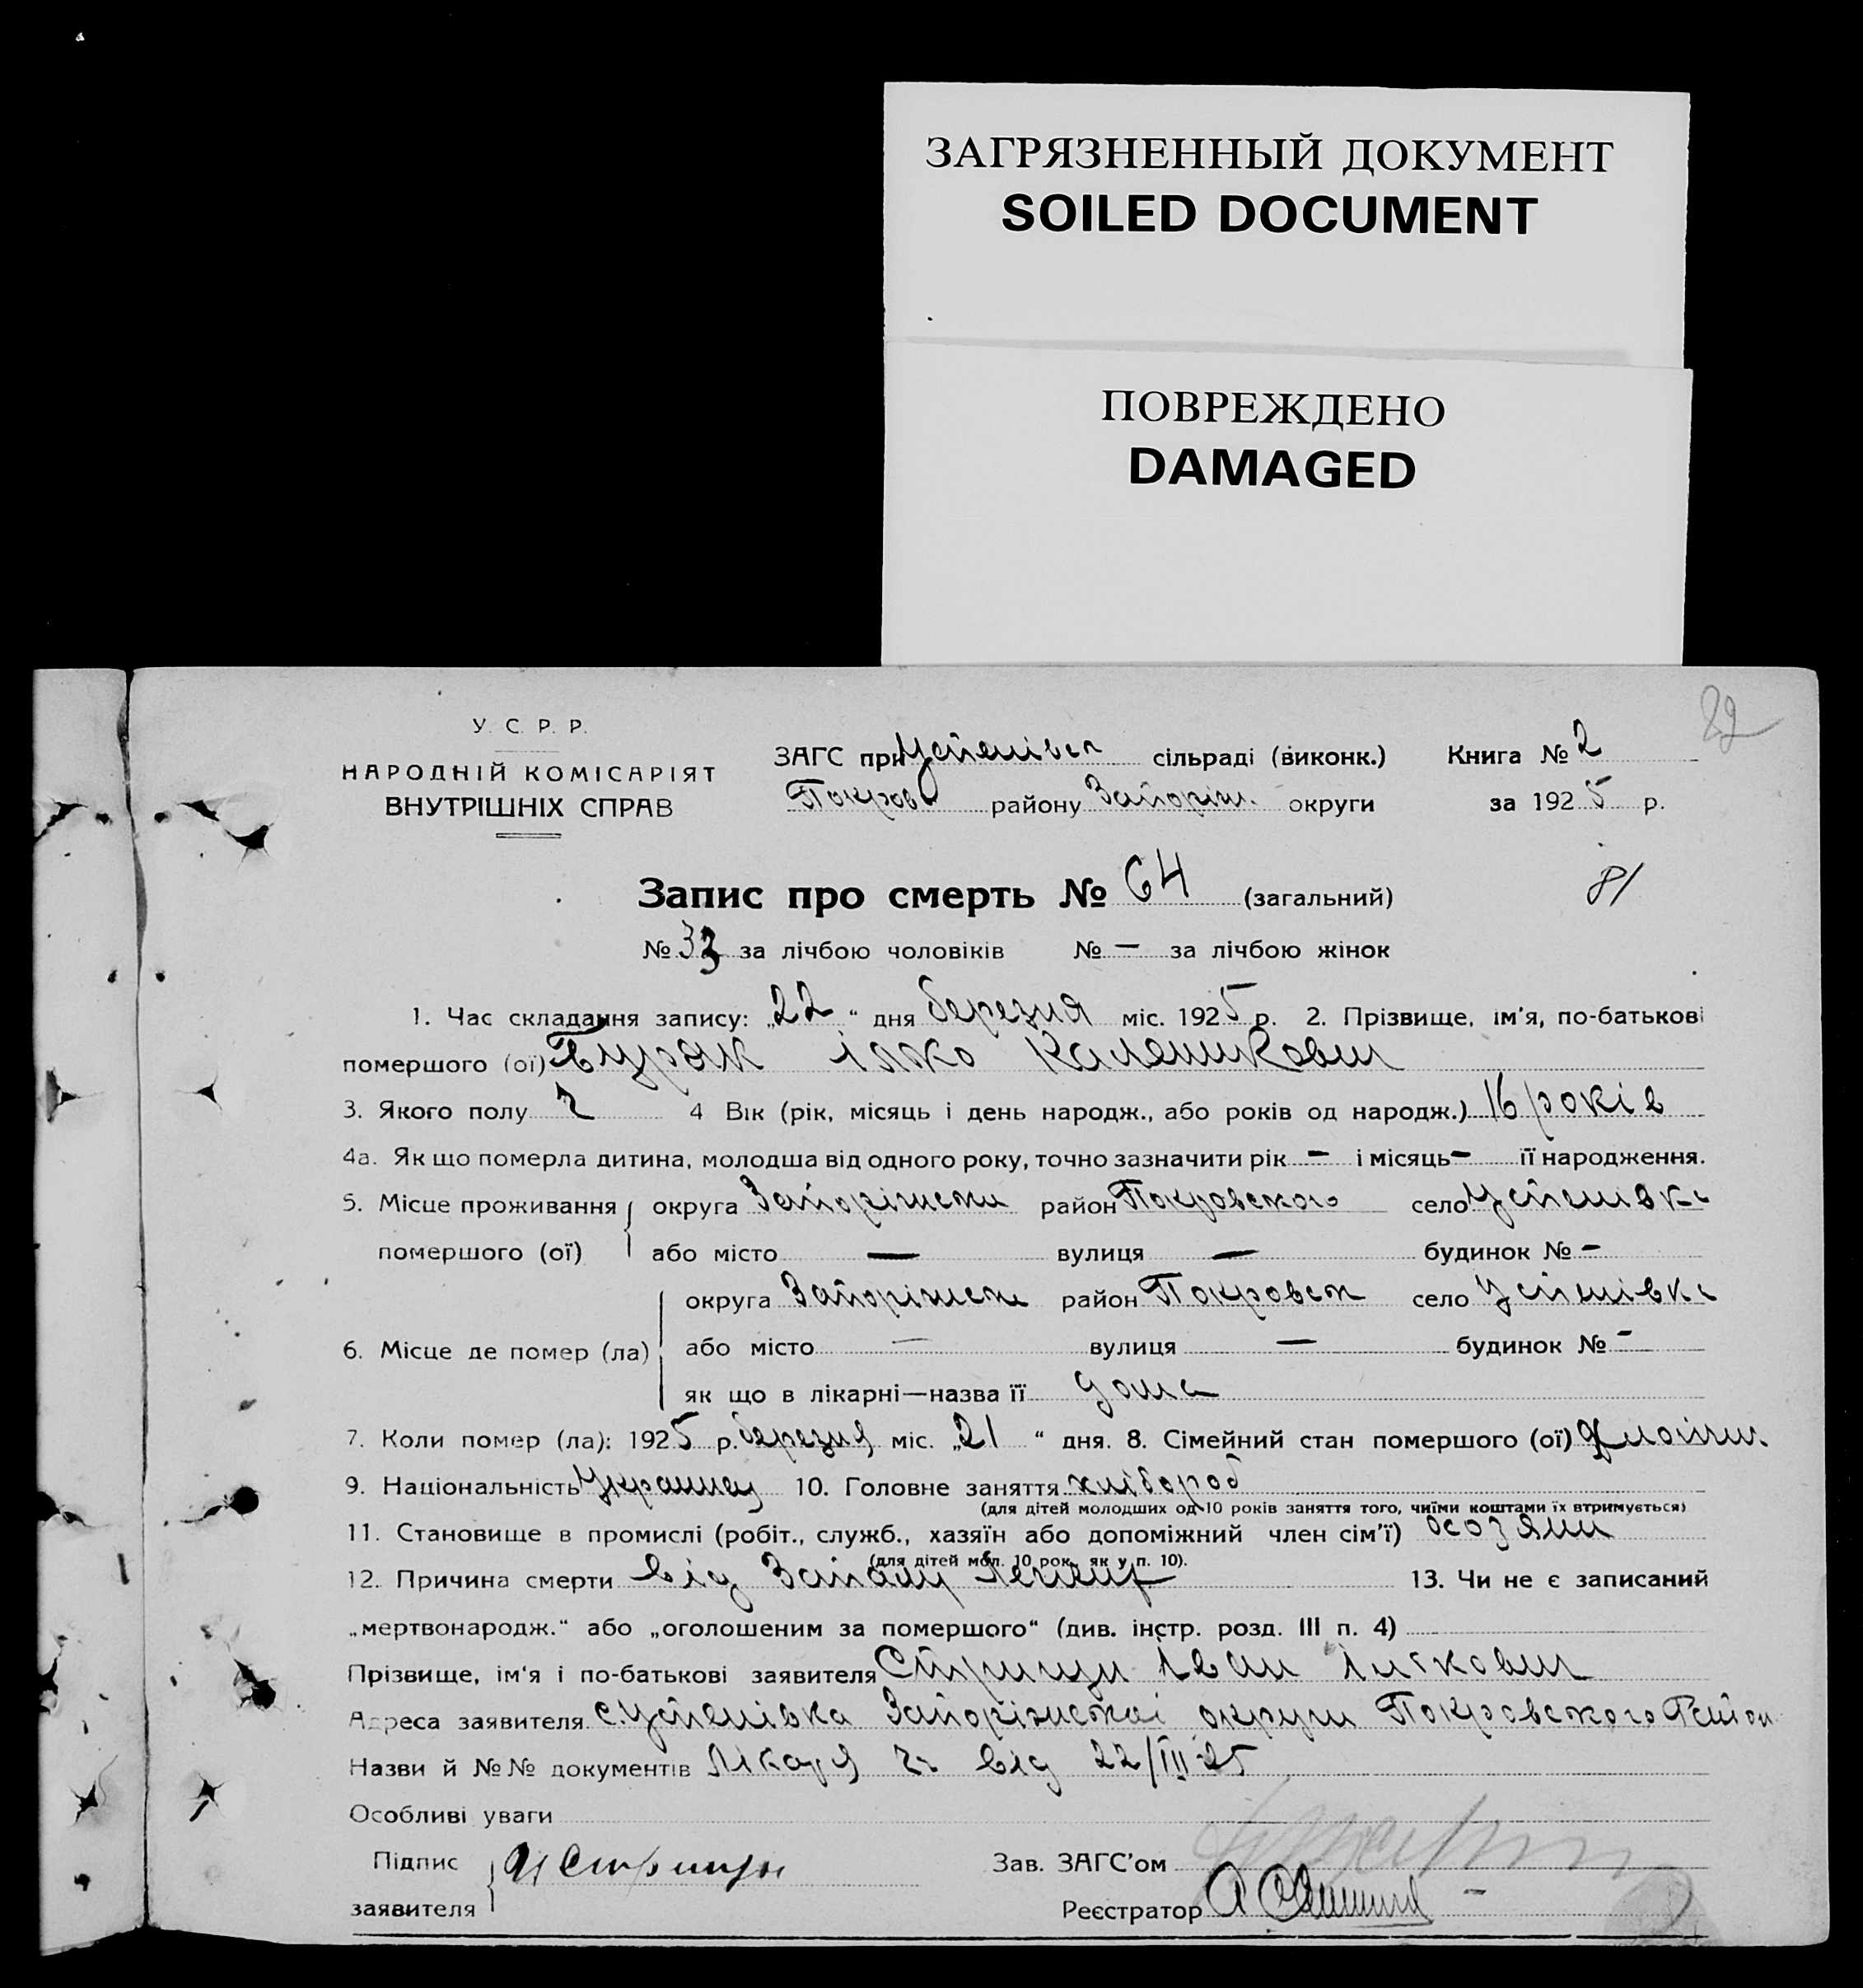 ЗАГРЯЗНЕННЫЙ ДОКУМЕНТ
SOILED DOCUMENT
ПОВРЕЖДЕНО
DAMAGED
У. С. Р. Р.
НАРОДНІЙ КОМІСАРІЯТ
ВНУТРІШНІХ СПРАВ
ЗАГС при Успенівск сільраді (виконк.) Книга № 2
Покров району Запоріж. округи за 1925 р.
81
Запис про смерть № 64 (загальний)
№ 33 за лічбою чоловіків № — за лічбою жінок
1. Час складання запису: „22“ дня березня міс. 1925 р. 2. Прізвище, ім'я, по-батькові
помершого (ої) Буряк Ілько Каленикович
3. Якого полу ч 4 Вік (рік, місяць і день народж., або років од народж.) 16 років
4а. Як що померла дитина, молодша від одного року, точно зазначити рік — і місяць — її народження.
5. Місце проживання помершого (ої) округа Запоріжська район Покровского село Успенівка
або місто — вулиця — будинок № —
6. Місце де помер (ла) округа Запоріжск район Покровск село Успенівка
або місто — вулиця — будинок № —
як що в лікарні—назва її дома
7. Коли помер (ла): 1925 р. березня міс. „21“ дня. 8. Сімейний стан помершого (ої)
9. Національність Украинец 10. Головне заняття хлібороб
(для дітей молодших од 10 років заняття того, чиїми коштами їх втримується)
11. Становище в промислі (робіт., служб., хазяїн або допоміжний член сім'ї)
(для дітей мол. 10 рок. як у п. 10).
12. Причина смерти від Запалу легенів 13. Чи не є записаний
„мертвонародж.“ або „оголошеним за помершого“ (див. інстр. розд. III п. 4)
Прізвище, ім'я і по-батькові заявителя Іван
Адреса заявителя с. Успенівка Запоріжської округи Покровского Район
Назви й №№ документів Лікаря від 22/III-25
Особливі уваги
Підпис заявителя
Зав. ЗАГС'ом
Реєстратор